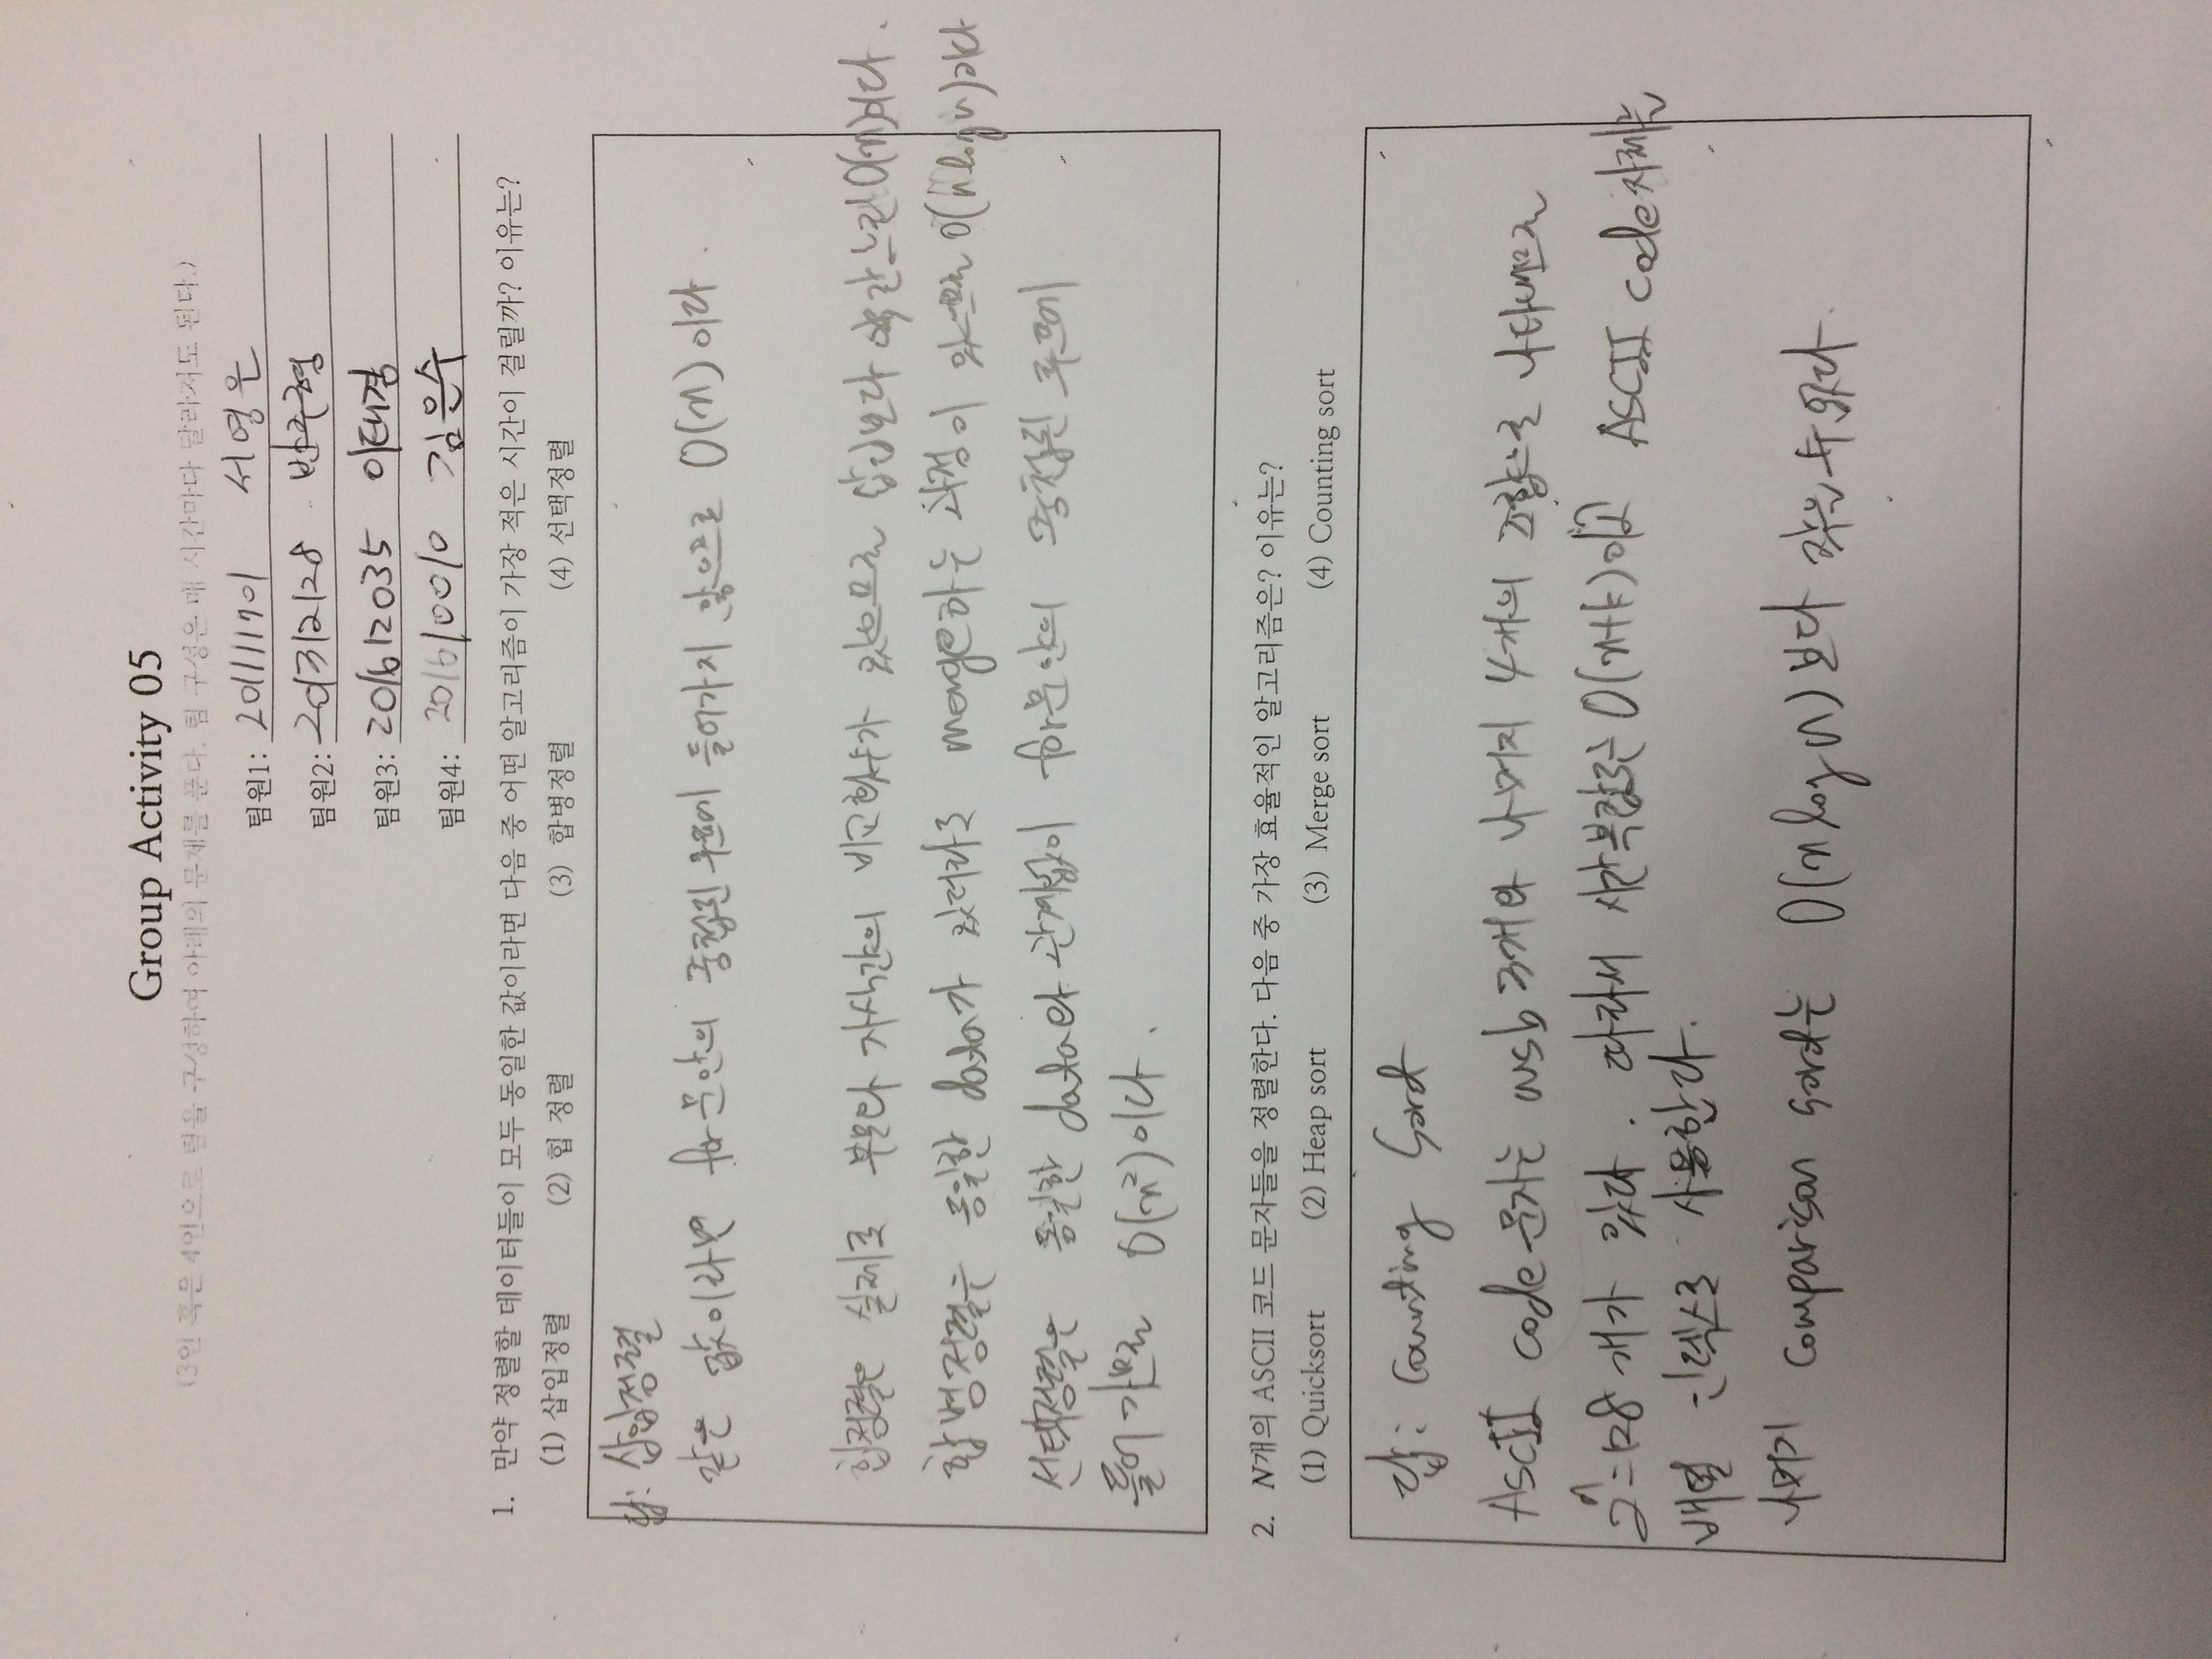 Group Activity 05
(3인 혹은 4인으로 팀을 구성하여 아래의 문제를 푼다. 팀 구성은 매 시간마다 달라져도 된다.)
팀원1: 201111701 서영은
팀원2: 201312128 반주형
팀원3: 201612035 이태경
팀원4: 201610010 김은수
1. 만약 정렬할 데이터들이 모두 동일한 값이라면 다음 중 어떤 알고리즘이 가장 적은 시간이 걸릴까? 이유는?
(1) 삽입정렬 (2) 힙 정렬 (3) 합병정렬 (4) 선택정렬
답: 삽입정렬
같은 값이라면 for문안의 중첩된 루프에 들어가지 않으므로 O(n)이다.
힙정렬은 실제로 부모와 자식간의 비교횟수가 있으므로 삽입보다 약간느린 O(n)이다.
합병정렬은 동일한 data가 있더라도 merge하는 과정이 있으므로 O(n log n)이다
선택정렬은 동일한 data와 관계없이 for문안의 중첩된 루프에
들어가므로 O(n²)이다.
2. N개의 ASCII 코드 문자들을 정렬한다. 다음 중 가장 효율적인 알고리즘은? 이유는?
(1) Quicksort (2) Heap sort (3) Merge sort (4) Counting sort
답: Counting Sort
ASCII code 문자는 msb 3개와 나머지 4개의 조합으로 나타내므로
2⁷=128개가 있다. 따라서 시간복잡도는 O(n+k)이고 ASCII code 자체는
배열 인덱스로 사용한다.
나머지 comparison sort는 O(n log n)보다 작을 수 없다.